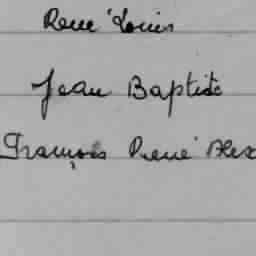 René Louis
Jean Baptiste
François René Alex